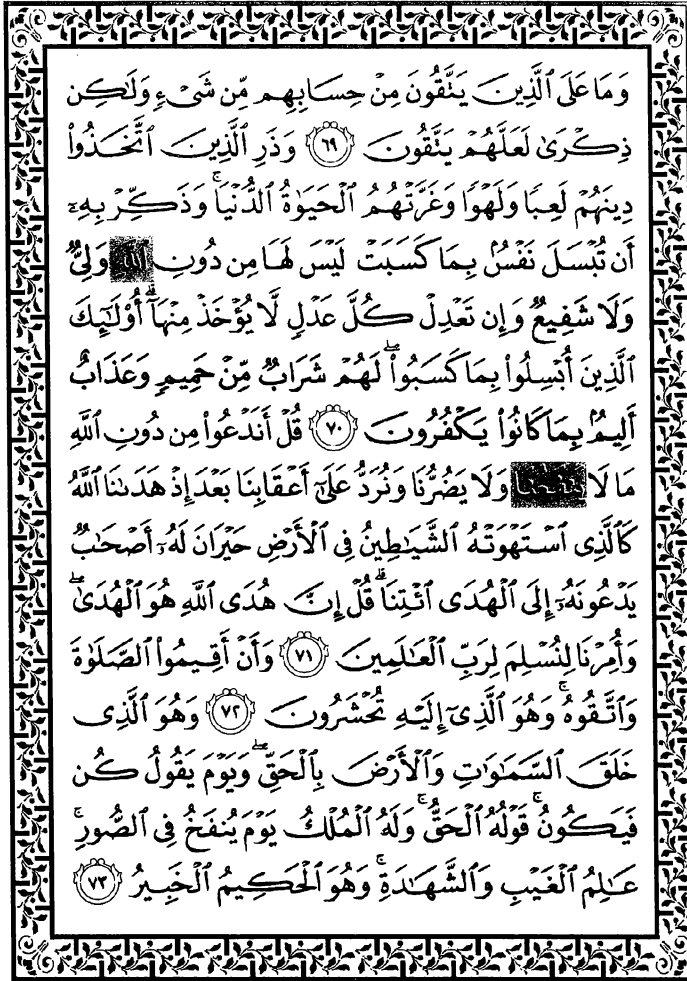 وَمَا عَلَى ٱلَّذِينَ يَتَّقُونَ مِنْ حِسَابِهِم مِّن شَىْءٍ وَلَٰكِن
ذِكْرَىٰ لَعَلَّهُمْ يَتَّقُونَ ٦٩ وَذَرِ ٱلَّذِينَ ٱتَّخَذُوا۟
دِينَهُمْ لَعِبًا وَلَهْوًا وَغَرَّتْهُمُ ٱلْحَيَوٰةُ ٱلدُّنْيَا ۚ وَذَكِّرْ بِهِۦٓ
أَن تُبْسَلَ نَفْسٌۢ بِمَا كَسَبَتْ لَيْسَ لَهَا مِن دُونِ ٱللَّهِ وَلِىٌّ
وَلَا شَفِيعٌ وَإِن تَعْدِلْ كُلَّ عَدْلٍ لَّا يُؤْخَذْ مِنْهَآ ۗ أُو۟لَٰٓئِكَ
ٱلَّذِينَ أُبْسِلُوا۟ بِمَا كَسَبُوا۟ ۖ لَهُمْ شَرَابٌ مِّنْ حَمِيمٍ وَعَذَابٌ
أَلِيمٌۢ بِمَا كَانُوا۟ يَكْفُرُونَ ٧٠ قُلْ أَنَدْعُوا۟ مِن دُونِ ٱللَّهِ
مَا لَا وَلَا يَضُرُّنَا وَنُرَدُّ عَلَىٰٓ أَعْقَابِنَا بَعْدَ إِذْ هَدَىٰنَا ٱللَّهُ
كَٱلَّذِى ٱسْتَهْوَتْهُ ٱلشَّيَٰطِينُ فِى ٱلْأَرْضِ حَيْرَانَ لَهُۥٓ أَصْحَٰبٌ
يَدْعُونَهُۥٓ إِلَى ٱلْهُدَى ٱئْتِنَا ۗ قُلْ إِنَّ هُدَى ٱللَّهِ هُوَ ٱلْهُدَىٰ ۖ
وَأُمِرْنَا لِنُسْلِمَ لِرَبِّ ٱلْعَٰلَمِينَ ٧١ وَأَنْ أَقِيمُوا۟ ٱلصَّلَوٰةَ
وَٱتَّقُوهُ ۚ وَهُوَ ٱلَّذِىٓ إِلَيْهِ تُحْشَرُونَ ٧٢ وَهُوَ ٱلَّذِى
خَلَقَ ٱلسَّمَٰوَٰتِ وَٱلْأَرْضَ بِٱلْحَقِّ ۖ وَيَوْمَ يَقُولُ كُن
فَيَكُونُ ۚ قَوْلُهُ ٱلْحَقُّ ۚ وَلَهُ ٱلْمُلْكُ يَوْمَ يُنفَخُ فِى ٱلصُّورِ ۚ
عَٰلِمُ ٱلْغَيْبِ وَٱلشَّهَٰدَةِ ۚ وَهُوَ ٱلْحَكِيمُ ٱلْخَبِيرُ ٧٣